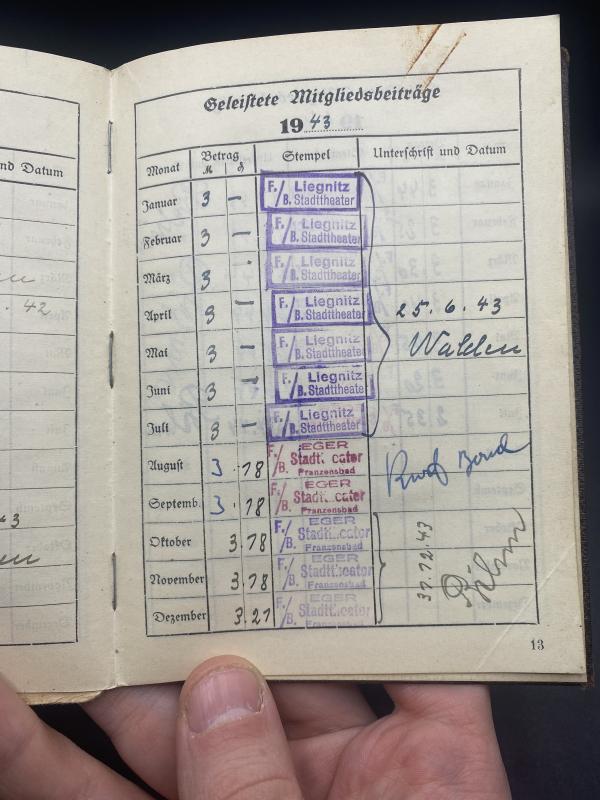 nd Datum
42
Geleistete Mitgliedsbeiträge
19 43
Monat Betrag Stempel Unterschrift und Datum
ℳ ₰
Januar 3 — F./B. Liegnitz Stadttheater
Februar 3 — F./B. Liegnitz Stadttheater
März 3 F./B. Liegnitz Stadttheater
April 3 — F./B. Liegnitz Stadttheater 25.6.43
Mai 3 — F./B. Liegnitz Stadttheater Walden
Juni 3 — F./B. Liegnitz Stadttheate
Juli 3 — F./B. Liegnitz Stadttheater
August 3.18 F./B. EGER Stadtt eater Franzensbad
Septemb. 3.18 F./B. EGER Stadtt eater Franzensbad
Oktober 3.18 F./B. EGER Stadtt eater Franzensbad
November 3.18 F./B. EGER Stadttheater Franzensbad 31.12.43
Dezember 3.21 F./B. EGER Stadttheater
13